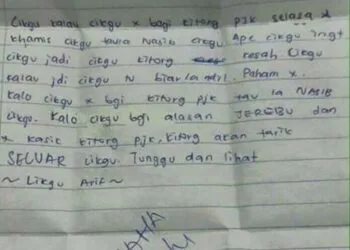 Cikgu kalau cikgu x bagi kitorg pjk selasa &
khamis cikgu taula Nasib cikgu. Ape cikgu ingt
cikgu jadi cikgu kitorg kesah Cikgu
kalau jdi cikgu tu biarla adil. Paham x.
Kalo cikgu x bgi kitorg pjk tau la NASIB
cikgu. Kalo cikgu bgi alasan JEREBU dan
x kasik kitorg pjk, kitorg akan tarik
SELUAR cikgu. Tunggu dan lihat
~ Cikgu Arif ~